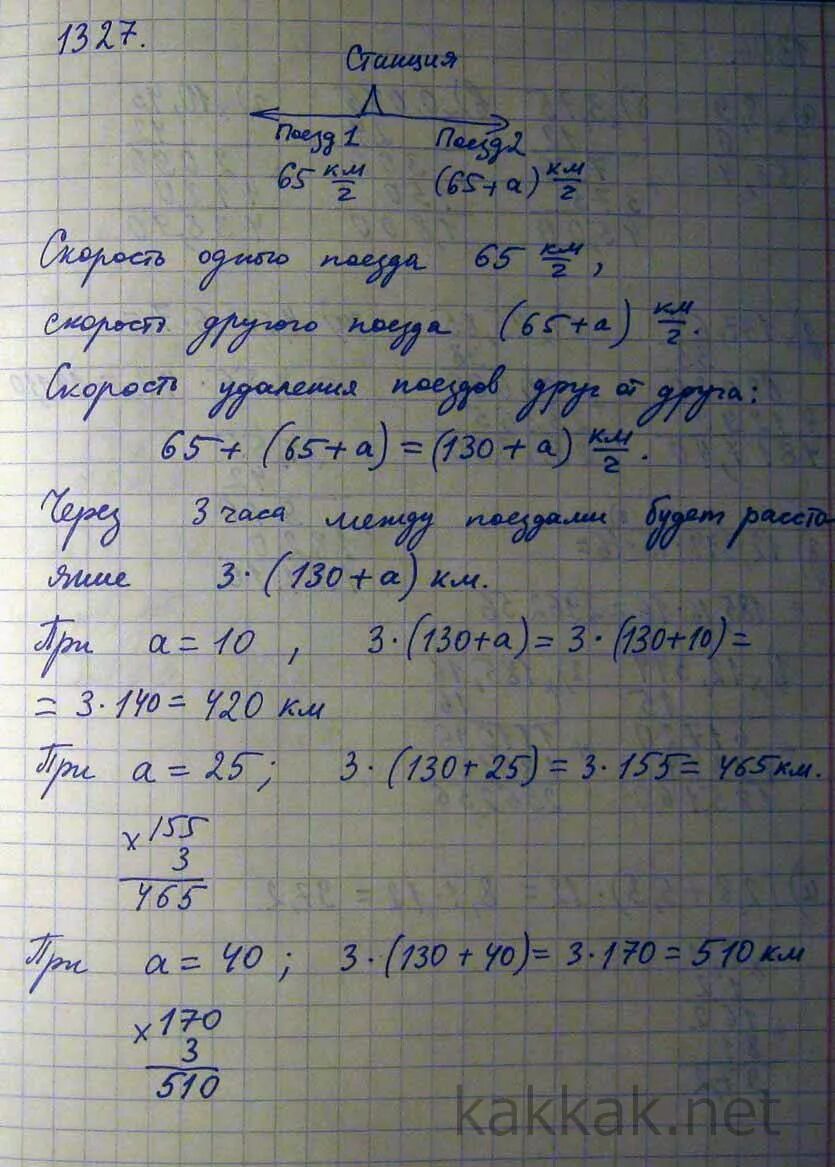 1327.
Станция
Поезд 1 Поезд 2
65 км/г (65+а) км/г
Скорость одного поезда 65 км/г,
скорость другого поезда (65+а) км/г.
Скорость удаления поездов друг от друга:
65+(65+а)=(130+а) км/г.
Через 3 часа между поездами будет рассто
яние 3·(130+а) км.
При а=10, 3·(130+а)=3·(130+10)=
=3·140=420 км
При а=25; 3·(130+25)=3·155=465 км.
×155
3
465
При а=40; 3·(130+40)=3·170=510 км
×170
3
510
kakkak.net